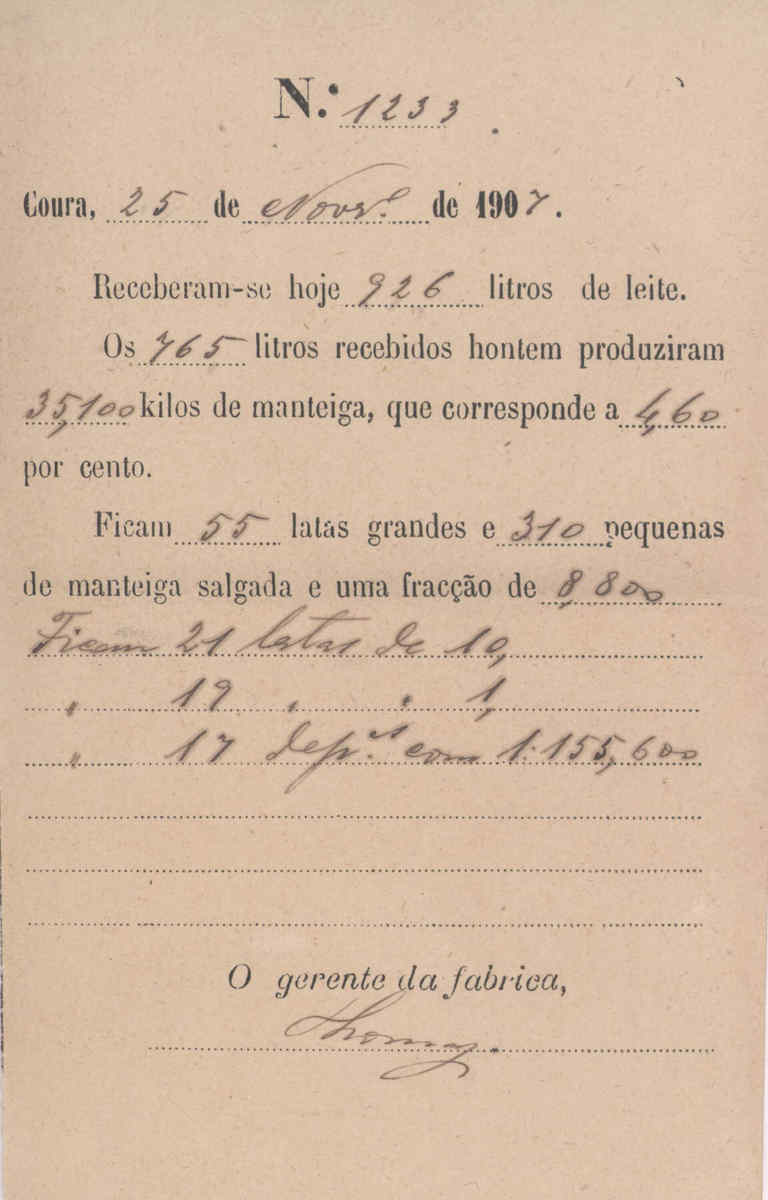 N.º 1233
Coura, 25 de Novr.º de 1907.
Receberam-se hoje 926 litros de leite.
Os 765 litros recebidos hontem produziram
35,100 kilos de manteiga, que corresponde a 4,60
por cento.
Ficam 55 latas grandes e 310 pequenas
de manteiga salgada e uma fracção de 8,800
Ficam 21 latas de 10,
" 19 " " 1,
" 17 dep.ᵒˢ com 1:155,600
O gerente da fabrica,
Thomaz